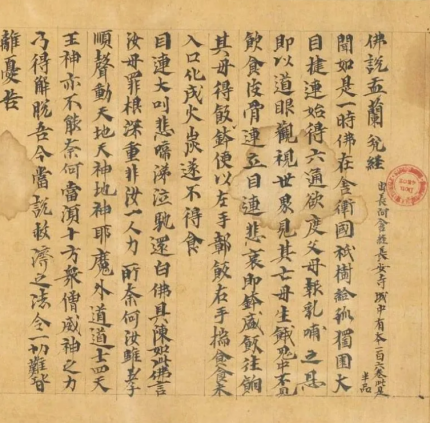 佛說盂蘭瓫經
出長阿含經長安寺
聞如是一時佛在舍衛國祇樹給孤獨園大
目揵連始得六通欲度父母報乳哺之恩
即以道眼觀視世界見其亡母生餓鬼中不見
飲食皮骨連立目連悲哀即鉢盛飯往餉
其母母得鉢飯便以左手鄣飯右手摶食食未
入口化成火炭遂不得食
目連大叫悲啼涕泣馳還白佛具陳如此佛言
汝母罪根深重非汝一人力所奈何汝雖孝
順聲動天地天神地神耶魔外道道士四天
王神亦不能奈何當須十方衆僧威神之力
乃得解脫吾今當說救濟之法令一切難皆
離憂苦